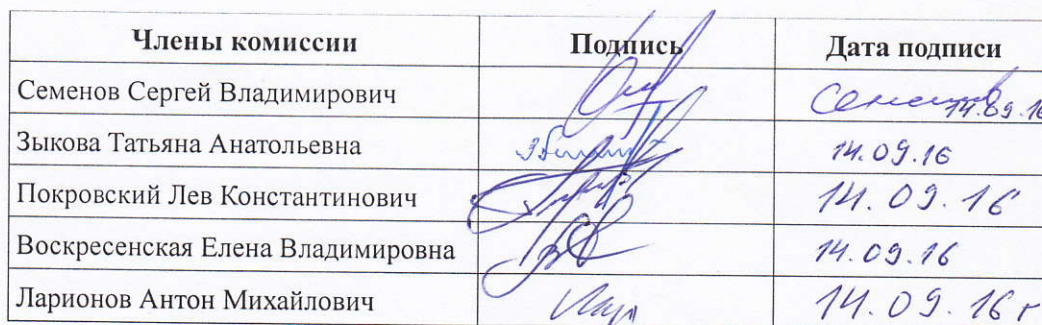 Члены комиссии Подпись Дата подписи
Семенов Сергей Владимирович Семенов 14.09.16
Зыкова Татьяна Анатольевна 14.09.16
Покровский Лев Константинович 14.09.16
Воскресенская Елена Владимировна 14.09.16
Ларионов Антон Михайлович Лар 14.09.16 г